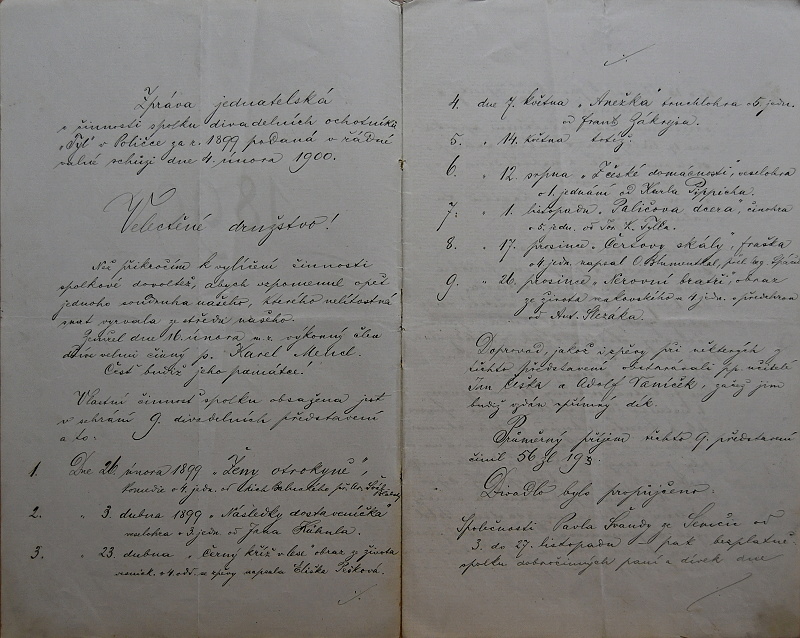 Zpráva jednatelská
o činnosti spolku divadelních ochotníků
„Tyl“ v Poličce za r. 1899 podaná v řádné
valné schůzi dne 4. února 1900.
Velectěné družstvo!
Než přikročím k vylíčení činnosti
spolkové dovoltéž, abych vzpomenul opět
jednoho soudruha našeho, kterého nelítostná
smrt vyrvala z středu našeho.
Zemřel dne 16. února m. r. výkonný člen
dříve velmi činný p. Karel
Čest budiž jeho památce!
Vlastní činnost spolku obsažena jest
v sehrání 9. divadelních představení
a to:
1. Dne 26. února 1899 „Ženy otrokyně“,
komedie o 4. jedn. od
2. „ 3. dubna 1899 „Následky dostaveníčka“
veselohra o 3. jedn. od Jana Kühnla.
3. „ 23. dubna „Černý kříž v lese“ obraz z života
venick. o 4. odd. se zpěvy napsala Eliška Pešková.
4. dne 7. května „Anežka“ činohra o 5. jedn.
od Franz Zákrejsa.
5. „ 14. května totéž.
6. „ 12. srpna „Z české domácnosti“, veselohra
o 1. jednání od Karla Pippicha.
7. „ 1. listopadu „Paličova dcera“, činohra
o 5. jedn. od Jos. K. Tylla.
8. „ 17. prosince „Čertovy skály“, fraška
o 4. jedn. napsal O. Blumenthal, přel.
9. „ 26. prosince „Nerovní bratři“, obraz
ze života venkovského o 4 jedn. s předehrou
od Ant. Slezáka.
Doprovod, jakož i zpěvy při některých z
těchto představení obstarávali pp. učitelé
Jan Česta a Adolf Vaníček, začež jim
budiž vzdán upřímný dík.
Průměrný příjem těchto 9. představení
činil 56 zl 193.
Divadlo bylo propůjčeno:
Společnosti Pavla Švandy ze Semčic od
3. do 27. listopadu – pak bezplatně
spolku dobročinných paní a dívek dne